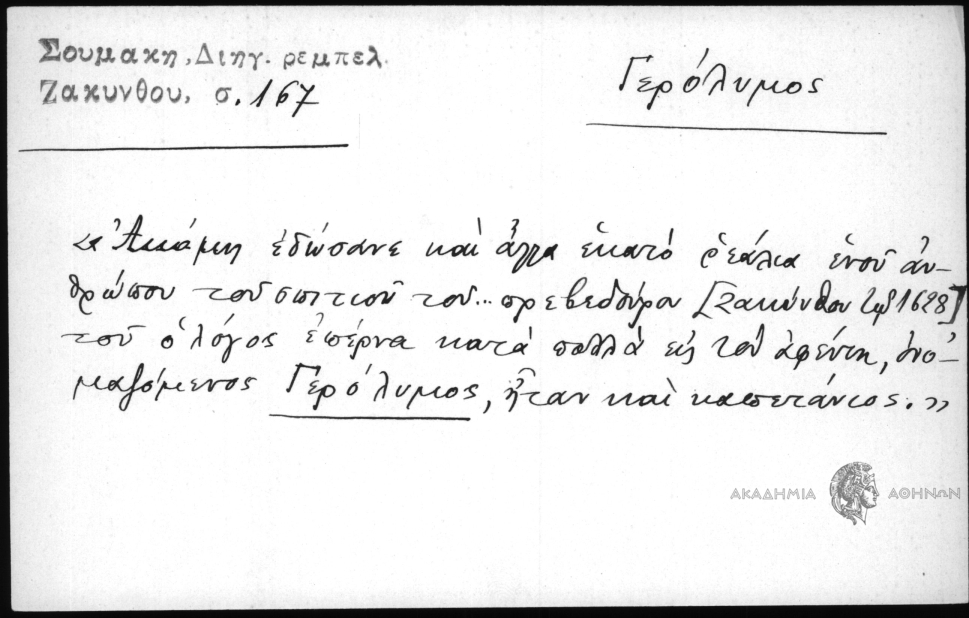 Σουμακη, Διηγ. ρεμπελ.
Ζακυνθου, σ. 167
Γερόλυμος
«Ἀκόμη ἐδώσανε καὶ ἄλλα ἑκατὸ ῥεάλια ἑνοῦ ἀν-
θρώπου τοῦ σπιτιοῦ τοῦ... πρεβεδούρου [Ζακύνθου τῷ 1628]
τοῦ ὁ λόγος ἐπέρνα κατὰ πολλὰ εἰς τὸν ἀφέντη, ὀνο-
μαζόμενος Γερόλυμος, ἦταν καὶ καπετάνιος.»
ΑΚΑΔΗΜΙΑ ΑΘΗΝΩΝ